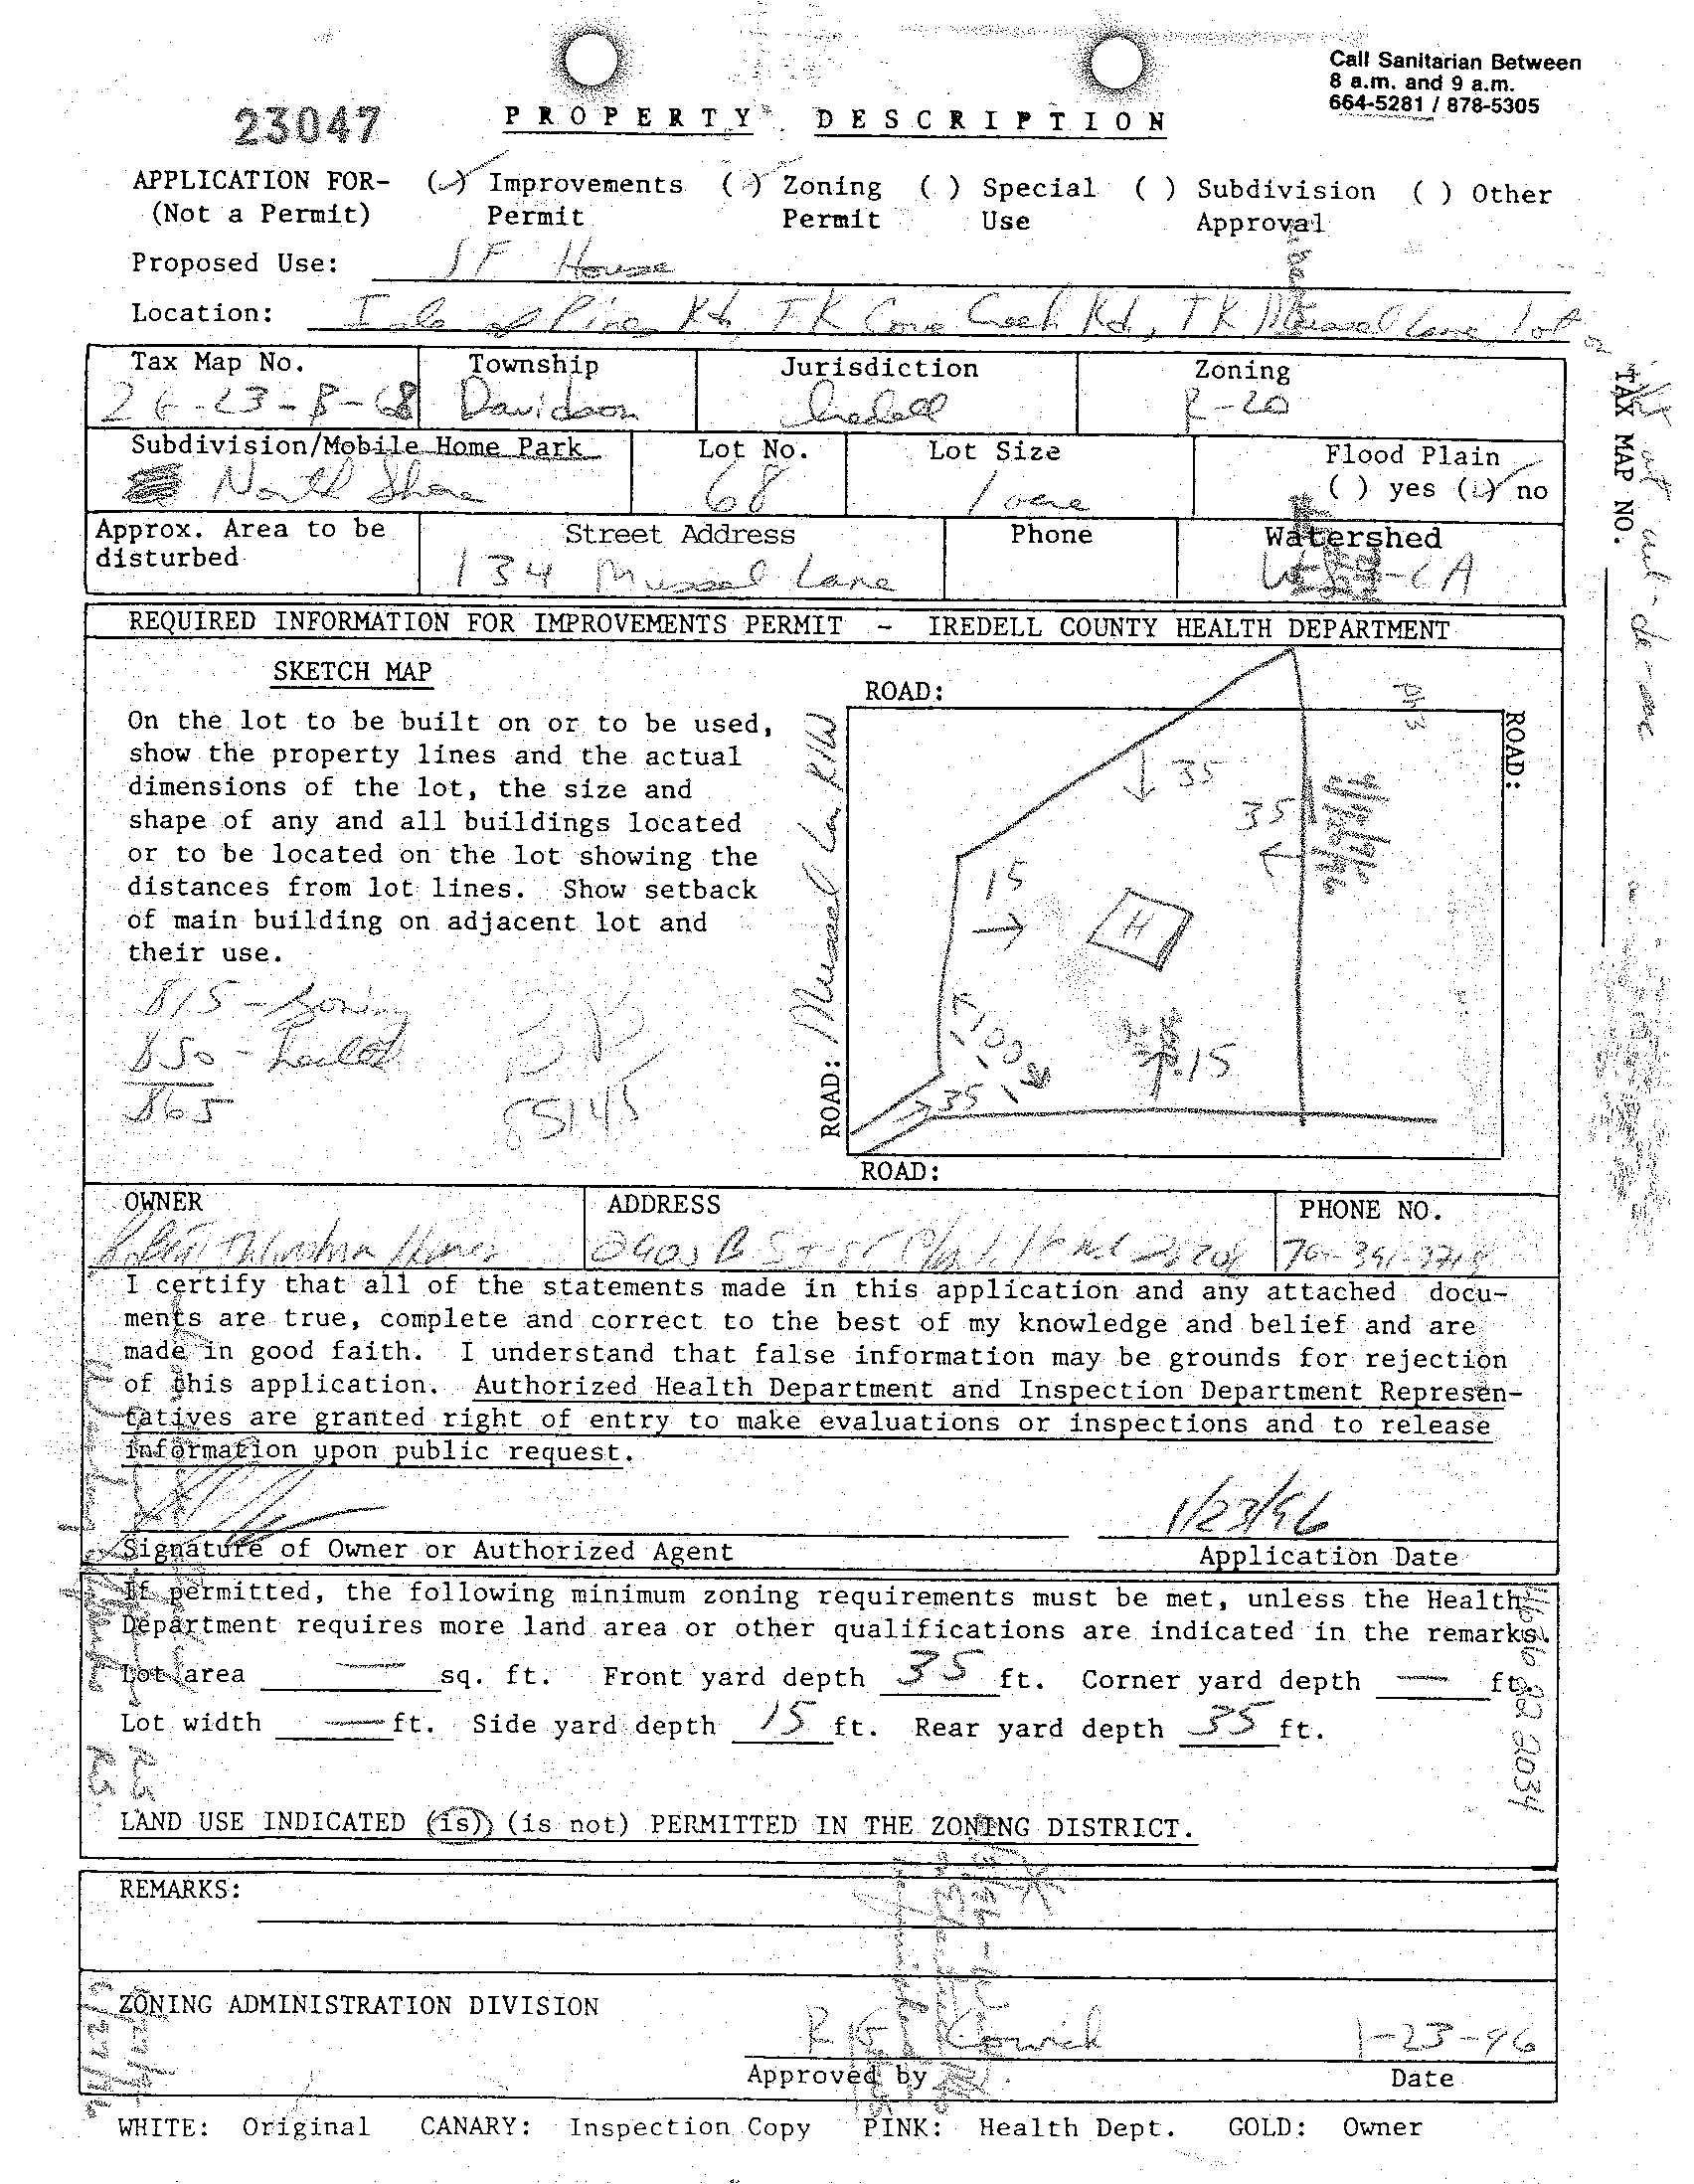 Call Sanitarian Between
8 a.m. and 9 a.m.
664-5281 / 878-5305
23047
PROPERTY DESCRIPTION
APPLICATION FOR- (✓) Improvements (✓) Zoning ( ) Special ( ) Subdivision ( ) Other
(Not a Permit) Permit Permit Use Approval
Proposed Use: SF House
Location: Isle of Pines Rd, TR Cove Creek Rd, TR Mussel Lane, lot on
Tax Map No. Township Jurisdiction Zoning
Davidson Iredell R-20
Subdivision/Mobile Home Park Lot No. Lot Size Flood Plain
North Shore 68 1 acre ( ) yes (✓) no
Approx. Area to be Street Address Phone Watershed
disturbed 134 Mussel Lane -CA
TAX MAP NO.
cul-de-sac
REQUIRED INFORMATION FOR IMPROVEMENTS PERMIT - IREDELL COUNTY HEALTH DEPARTMENT
SKETCH MAP
On the lot to be built on or to be used,
show the property lines and the actual
dimensions of the lot, the size and
shape of any and all buildings located
or to be located on the lot showing the
distances from lot lines. Show setback
of main building on adjacent lot and
their use.
815 - zoning
850 - health
865
55145
ROAD:
ROAD:
ROAD: Mussel Ln R/W
ROAD:
35
35
15
H
100
15
35
OWNER ADDRESS PHONE NO.
I certify that all of the statements made in this application and any attached docu-
ments are true, complete and correct to the best of my knowledge and belief and are
made in good faith. I understand that false information may be grounds for rejection
of this application. Authorized Health Department and Inspection Department Represen-
tatives are granted right of entry to make evaluations or inspections and to release
information upon public request.
1/23/96
Signature of Owner or Authorized Agent Application Date
If permitted, the following minimum zoning requirements must be met, unless the Health
Department requires more land area or other qualifications are indicated in the remarks.
Lot area — sq. ft. Front yard depth 35 ft. Corner yard depth — ft.
Lot width — ft. Side yard depth 15 ft. Rear yard depth 35 ft.
2034
LAND USE INDICATED (is) (is not) PERMITTED IN THE ZONING DISTRICT.
REMARKS:
ZONING ADMINISTRATION DIVISION
1-23-96
Approved by Date
WHITE: Original CANARY: Inspection Copy PINK: Health Dept. GOLD: Owner